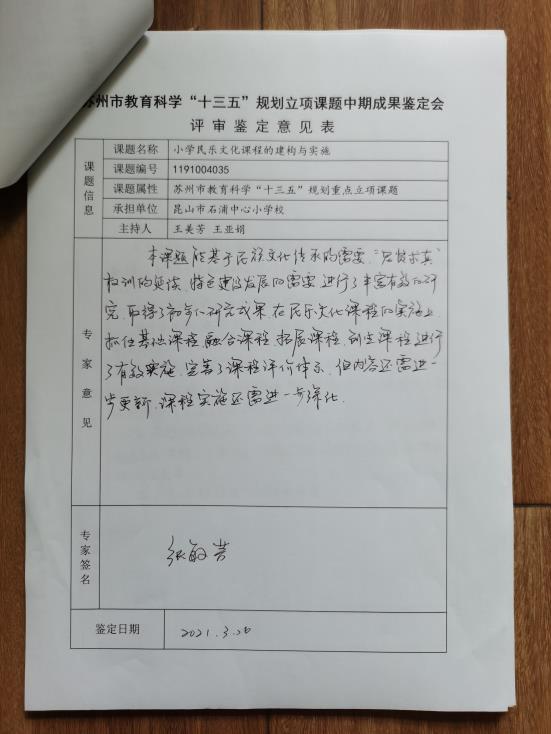 苏州市教育科学“十三五”规划立项课题中期成果鉴定会
评审鉴定意见表
课题信息
课题名称 小学民乐文化课程的建构与实施
课题编号 1191004035
课题属性 苏州市教育科学“十三五”规划重点立项课题
承担单位 昆山市石浦中心小学校
主持人 王美芳 王亚娟
专家意见
本课题能基于民族文化传承的需要,“求真”
校训的延续,特色建设发展的需要,进行了丰富有效的研
究,取得了研究成果,在民乐文化课程的实施上,
抓住基础课程,融合课程,拓展课程,创生课程,进行
了有效实施,完善了课程评价体系,但内容还需进一
步更新,课程实施还需进一步深化.
专家签名
张敏芳
鉴定日期 2021.3.26